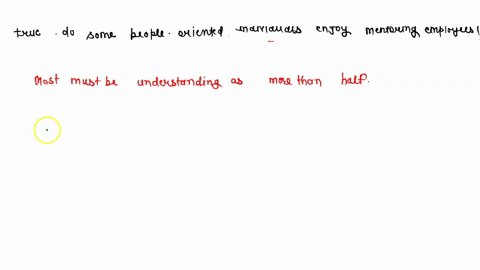 true . do some people - oriented individuals enjoy mentoring employees
Most must be understanding as more than half.